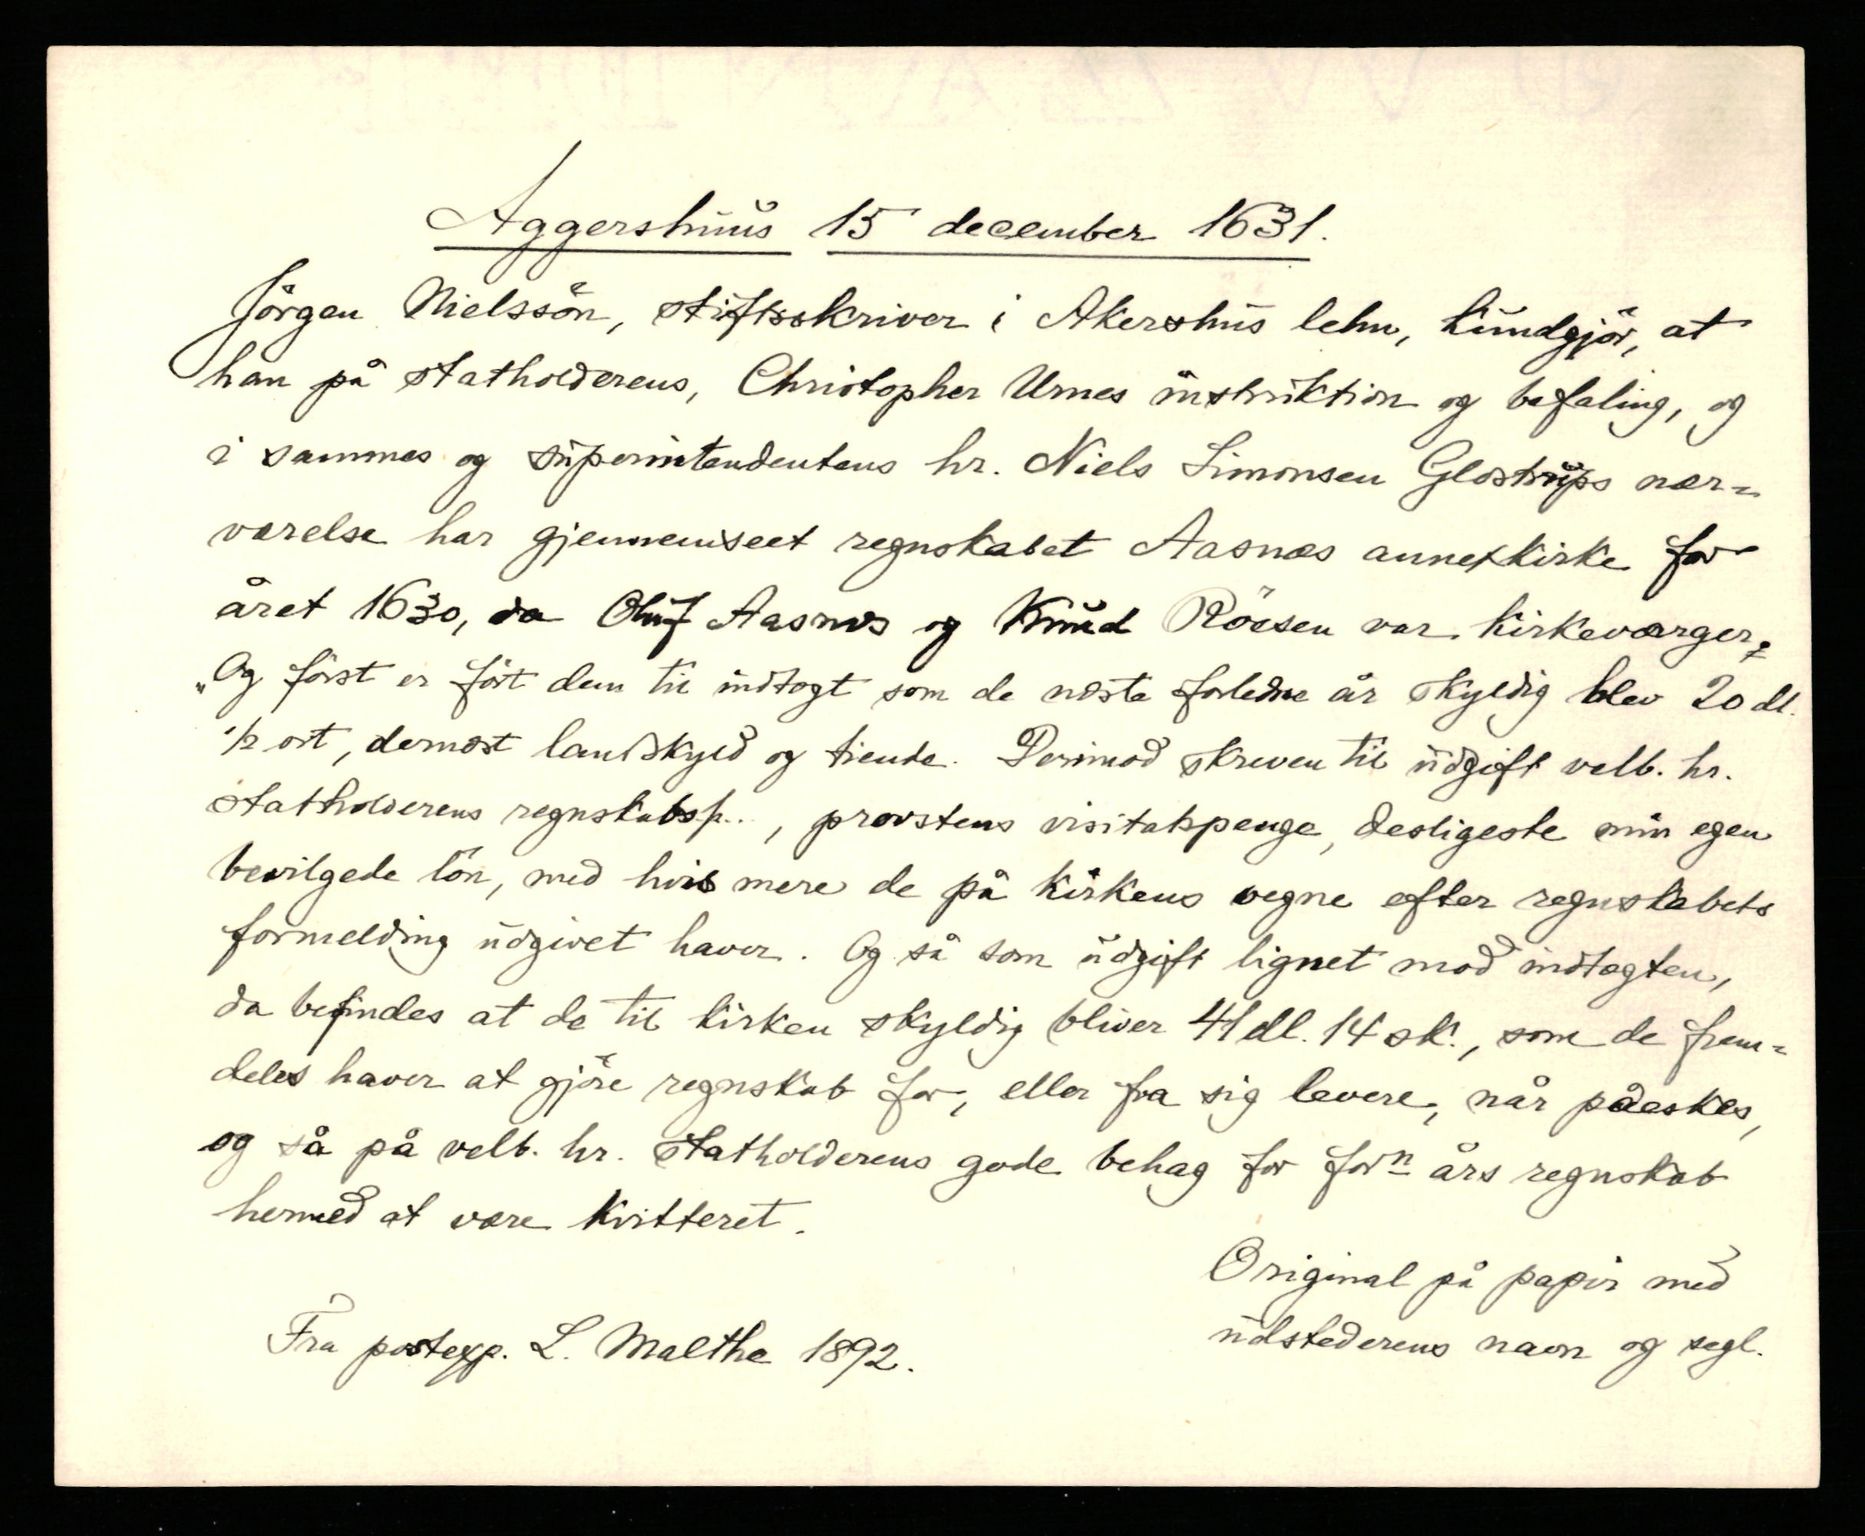 Aggershuus 15 december 1631.
Jörgen Nielssön, stiftsskriver i Akershus lehn, kundgjör, at
han på statholderens, Christopher Urnes instruktion og befaling, og
i sammes og superintendentens hr. Niels Simonsen Glostrups nær-
værelse har gjennemseet regnskabet Aasnæs annexkirke for
året 1630, da Oluf Aasnæs og Knud Röesen var kirkeværger;
„Og först er fört dem til indtægt som de næste forledne år skyldig blev 20 dl.
1/2 ort, dernæst landskyld og tiende. Derimod skreven til udgift velb. hr.
statholderens regnskabsp.., provstens visitatspenge, desligeste min egen
bevilgede lön, med hvis mere de på kirkens vegne efter regnskabets
formelding udgivet haver. Og så som udgift lignet mod indtægten,
da befindes at de til kirken skyldig bliver 41 dl. 14 sk., som de frem-
deles haver at gjöre regnskab for, eller fra sig levere, når påeskes,
og så på velb. hr. statholderens gode behag for forn års regnskab
hermed at være kvitteret.
Original på papir med
udstederens navn og segl.
Fra postexp. L. Malthe 1892.